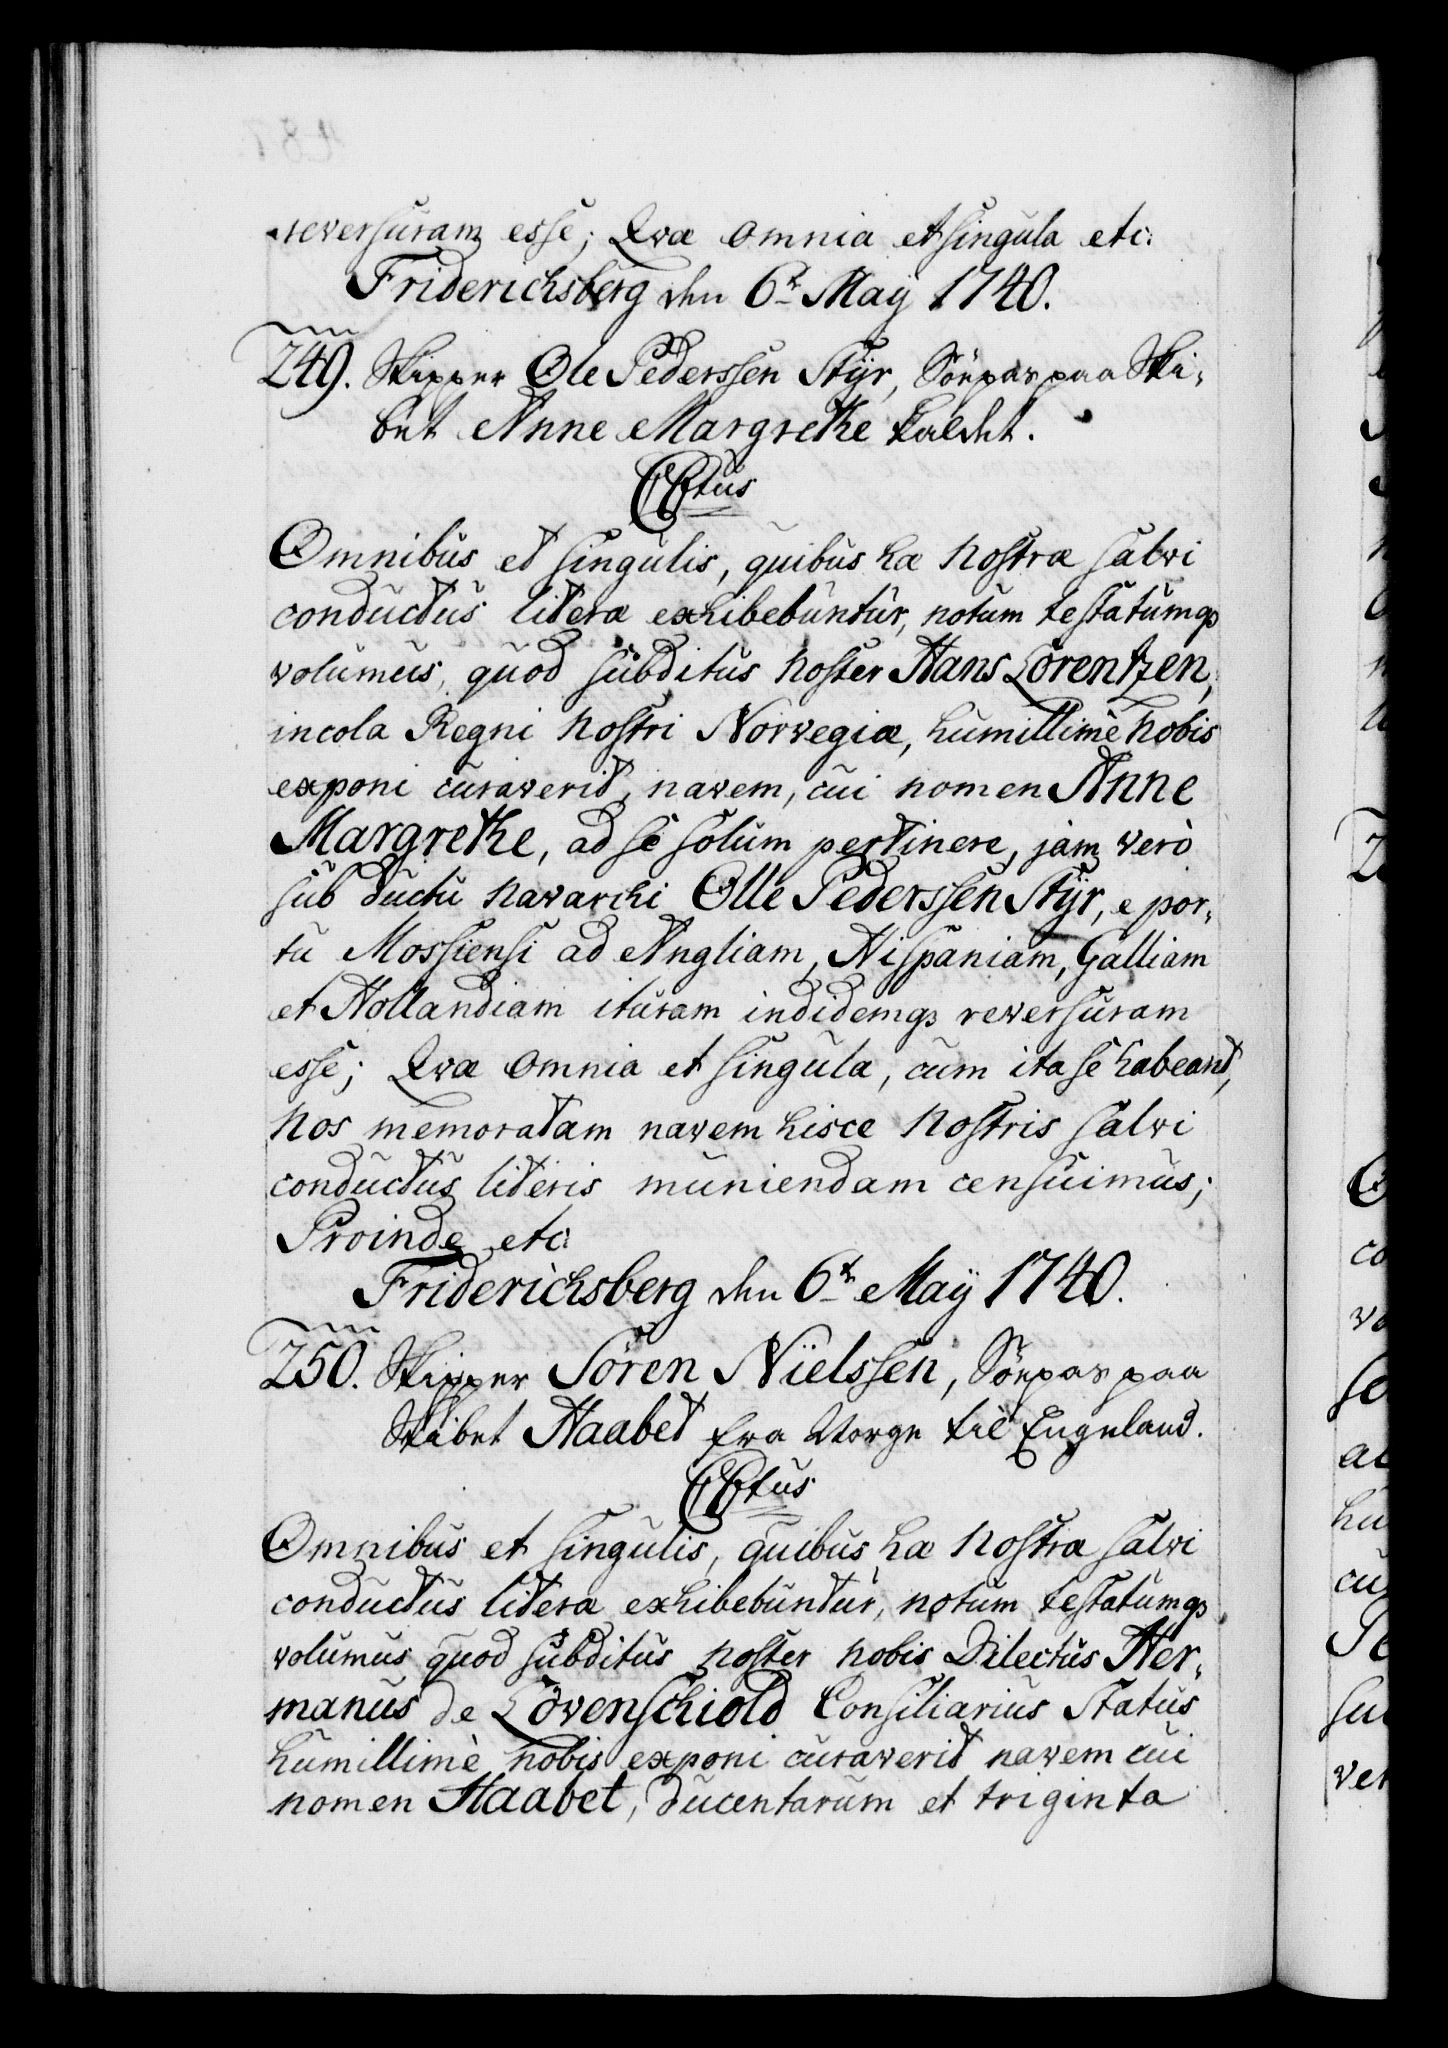 rewersuram esse; Qvæ omnia et singula etc:
Friderichsberg den 6t May 1740.
249. Skipper Ole Pederssen Stÿr, Söepas paa Ski-
bet Anne Margrethe kaldet.
Ctus
Omnibus et singulis, quibus hæ nostræ salvi
conductus literæ exhibebuntur, notum testatumqz
wolumus, quod subditus noster Hans Lorentzen,
incola Regni nostri Norwegiæ, humillimè nobis
exponi curawerit, nawem, cui nomen Anne
Margrethe, ad se solum pertinere, jam verò
sub ductu nawarchi Olle Pederssen Stÿr, e por-
tu Mossiensi ad Angliam, Hispaniam, Galliam
et Hollandiam ituram indidemqz rewersuram
esse; Qvæ omnia et singula, cum ita se habeant,
nos memoratam nawem hisce nostris salvi
conductus literis muniendam censuimus;
Proinde etc:
Friderichsberg den 6t Maÿ 1740.
250. Skipper Sören Nielssen, Söepas paa
Skibet Haabet fra Norge til Engeland.
Ctus
Omnibus et singulis, quibus hæ nostræ salvi
conductus literæ exhibebuntur, notum testatumqz
wolumus quod subditus noster nobis Dilectus Her-
manus de Lövenschiold Consiliarius Status
humillimè nobis exponi curawerit nawem cui
nomen Haabet, ducentarum et triginta